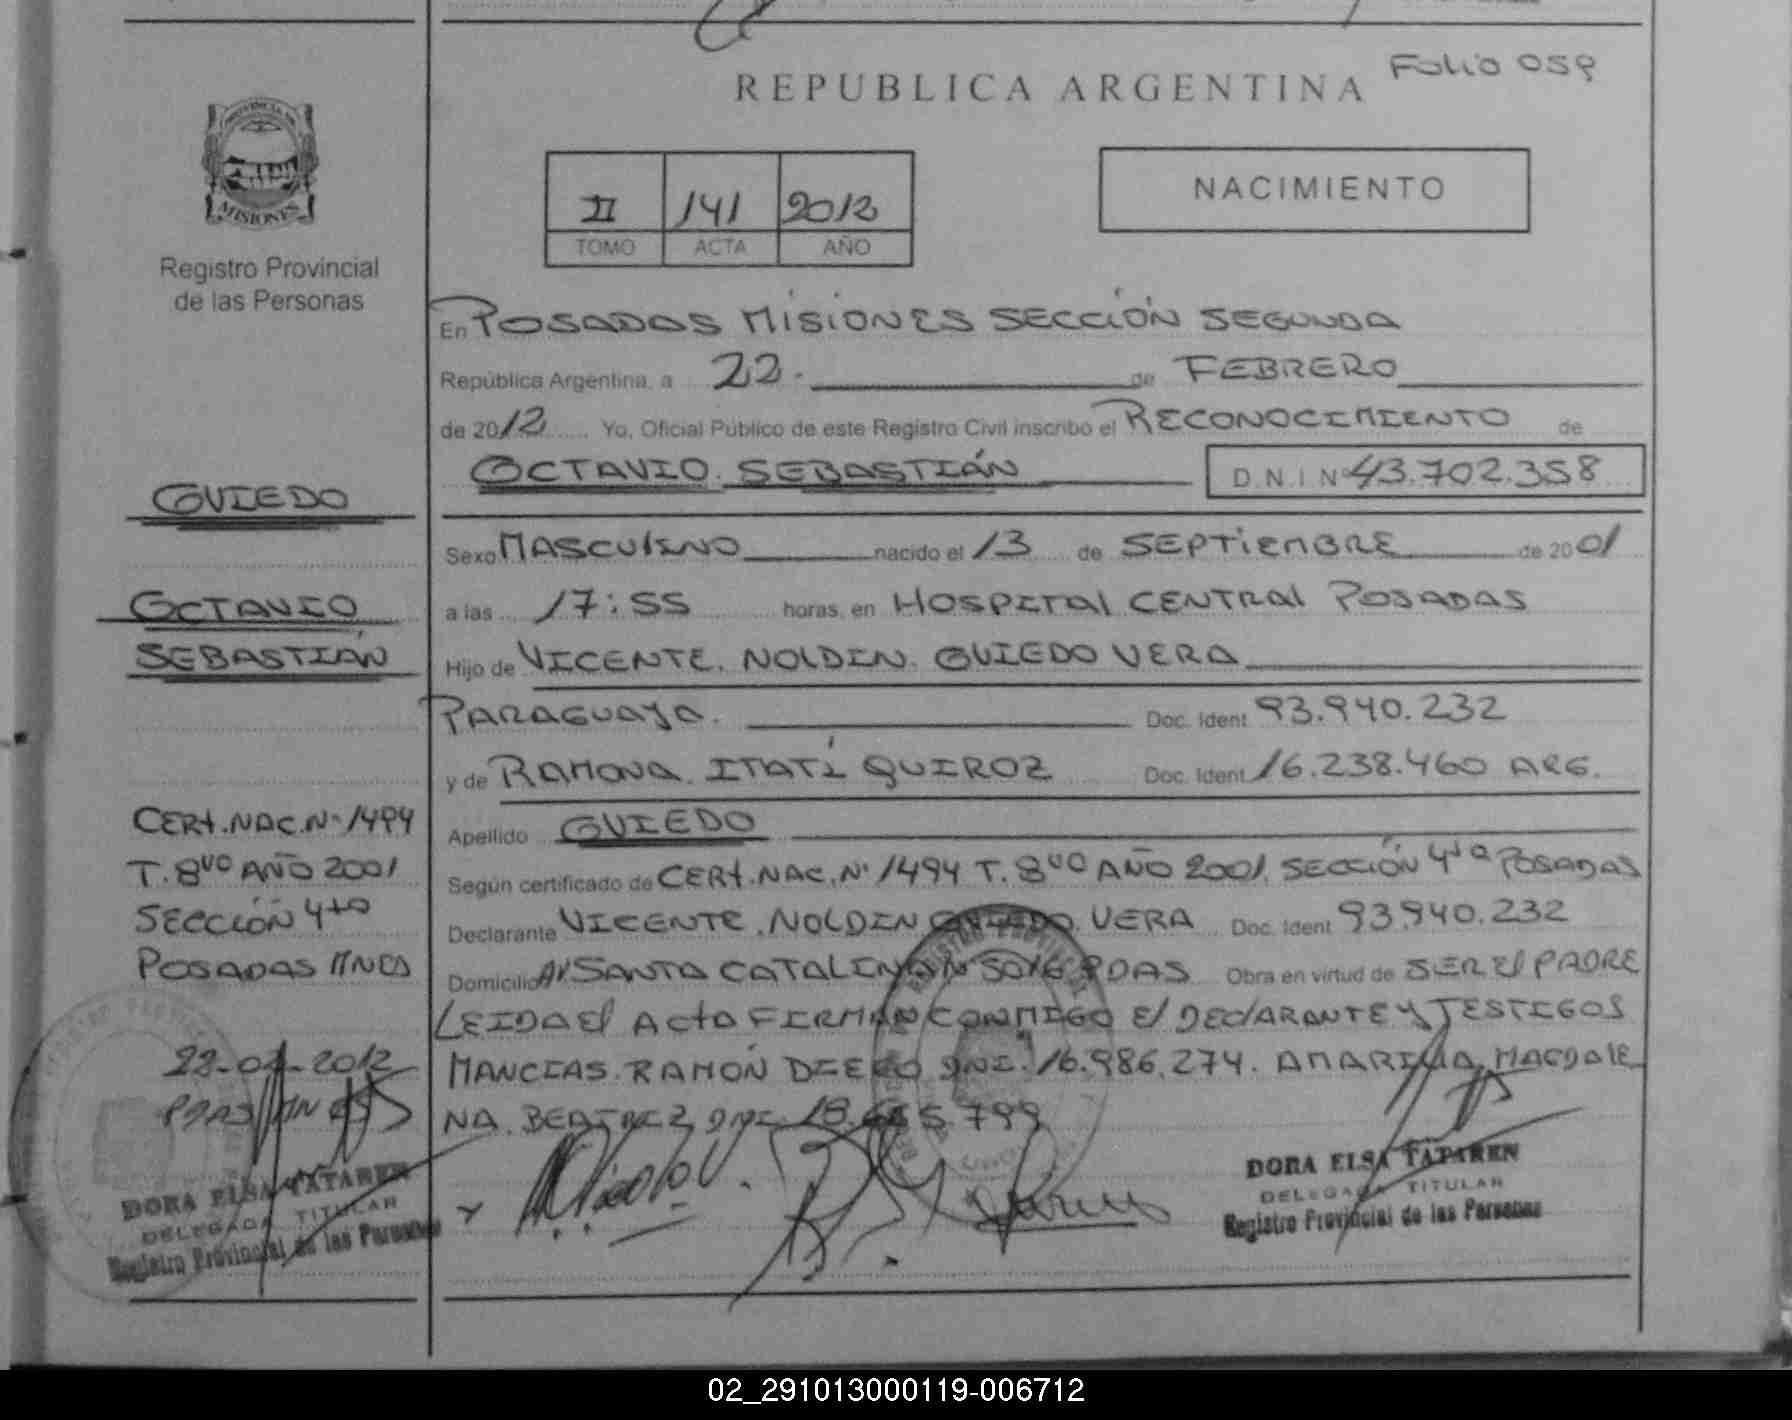 Folio 059
REPUBLICA ARGENTINA
PROVINCIA DE
MISIONES
Registro Provincial
de las Personas
II 141 2012
TOMO ACTA AÑO
NACIMIENTO
En POSADAS MISIONES SECCIÓN SEGUNDA
República Argentina, a 22. de FEBRERO
de 2012 Yo, Oficial Público de este Registro Civil inscribo el RECONOCIMIENTO de
OCTAVIO. SEBASTIÁN D.N.I Nº 43.702.358
Sexo MASCULINO nacido el 13 de SEPTIEMBRE de 2001
a las 17:55 horas, en HOSPITAL CENTRAL POSADAS
Hijo de VICENTE. NOLDIN. OVIEDO VERA
PARAGUAYA. Doc. Ident 93.940.232
y de RAMONA. ITATÍ QUIROZ Doc. Ident 16.238.460 ARG.
Apellido OVIEDO
Según certificado de CERT.NAC.Nº 1494 T. 8VO AÑO 2001. SECCIÓN 4ta POSADAS
Declarante VICENTE. NOLDIN OVIEDO. VERA Doc. Ident 93.940.232
Domicilio AV. SANTA CATALINA N 5016 PDAS Obra en virtud de SER El PADRE
LEIDA El ACTA FIRMAN CONMIGO El DEClARANTE Y TESTIGOS
MANCIAS. RAMÓN DIEGO DNI. 16.986.274. AMARILLA, MAGDALE
NA. BEATRIZ DNI.
OVIEDO
OCTAVIO
SEBASTIÁN
CERT.NAC.Nº 1494
T. 8VO AÑO 2001
SECCIÓN 4ta
POSADAS MNES
22-02-2012
PDAS MNES
DORA ELSA TATAREN
DELEGADA TITULAR
Registro Provincial de las Personas
DORA ELSA TATAREN
DELEGADA TITULAR
Registro Provincial de las Personas
02_291013000119-006712